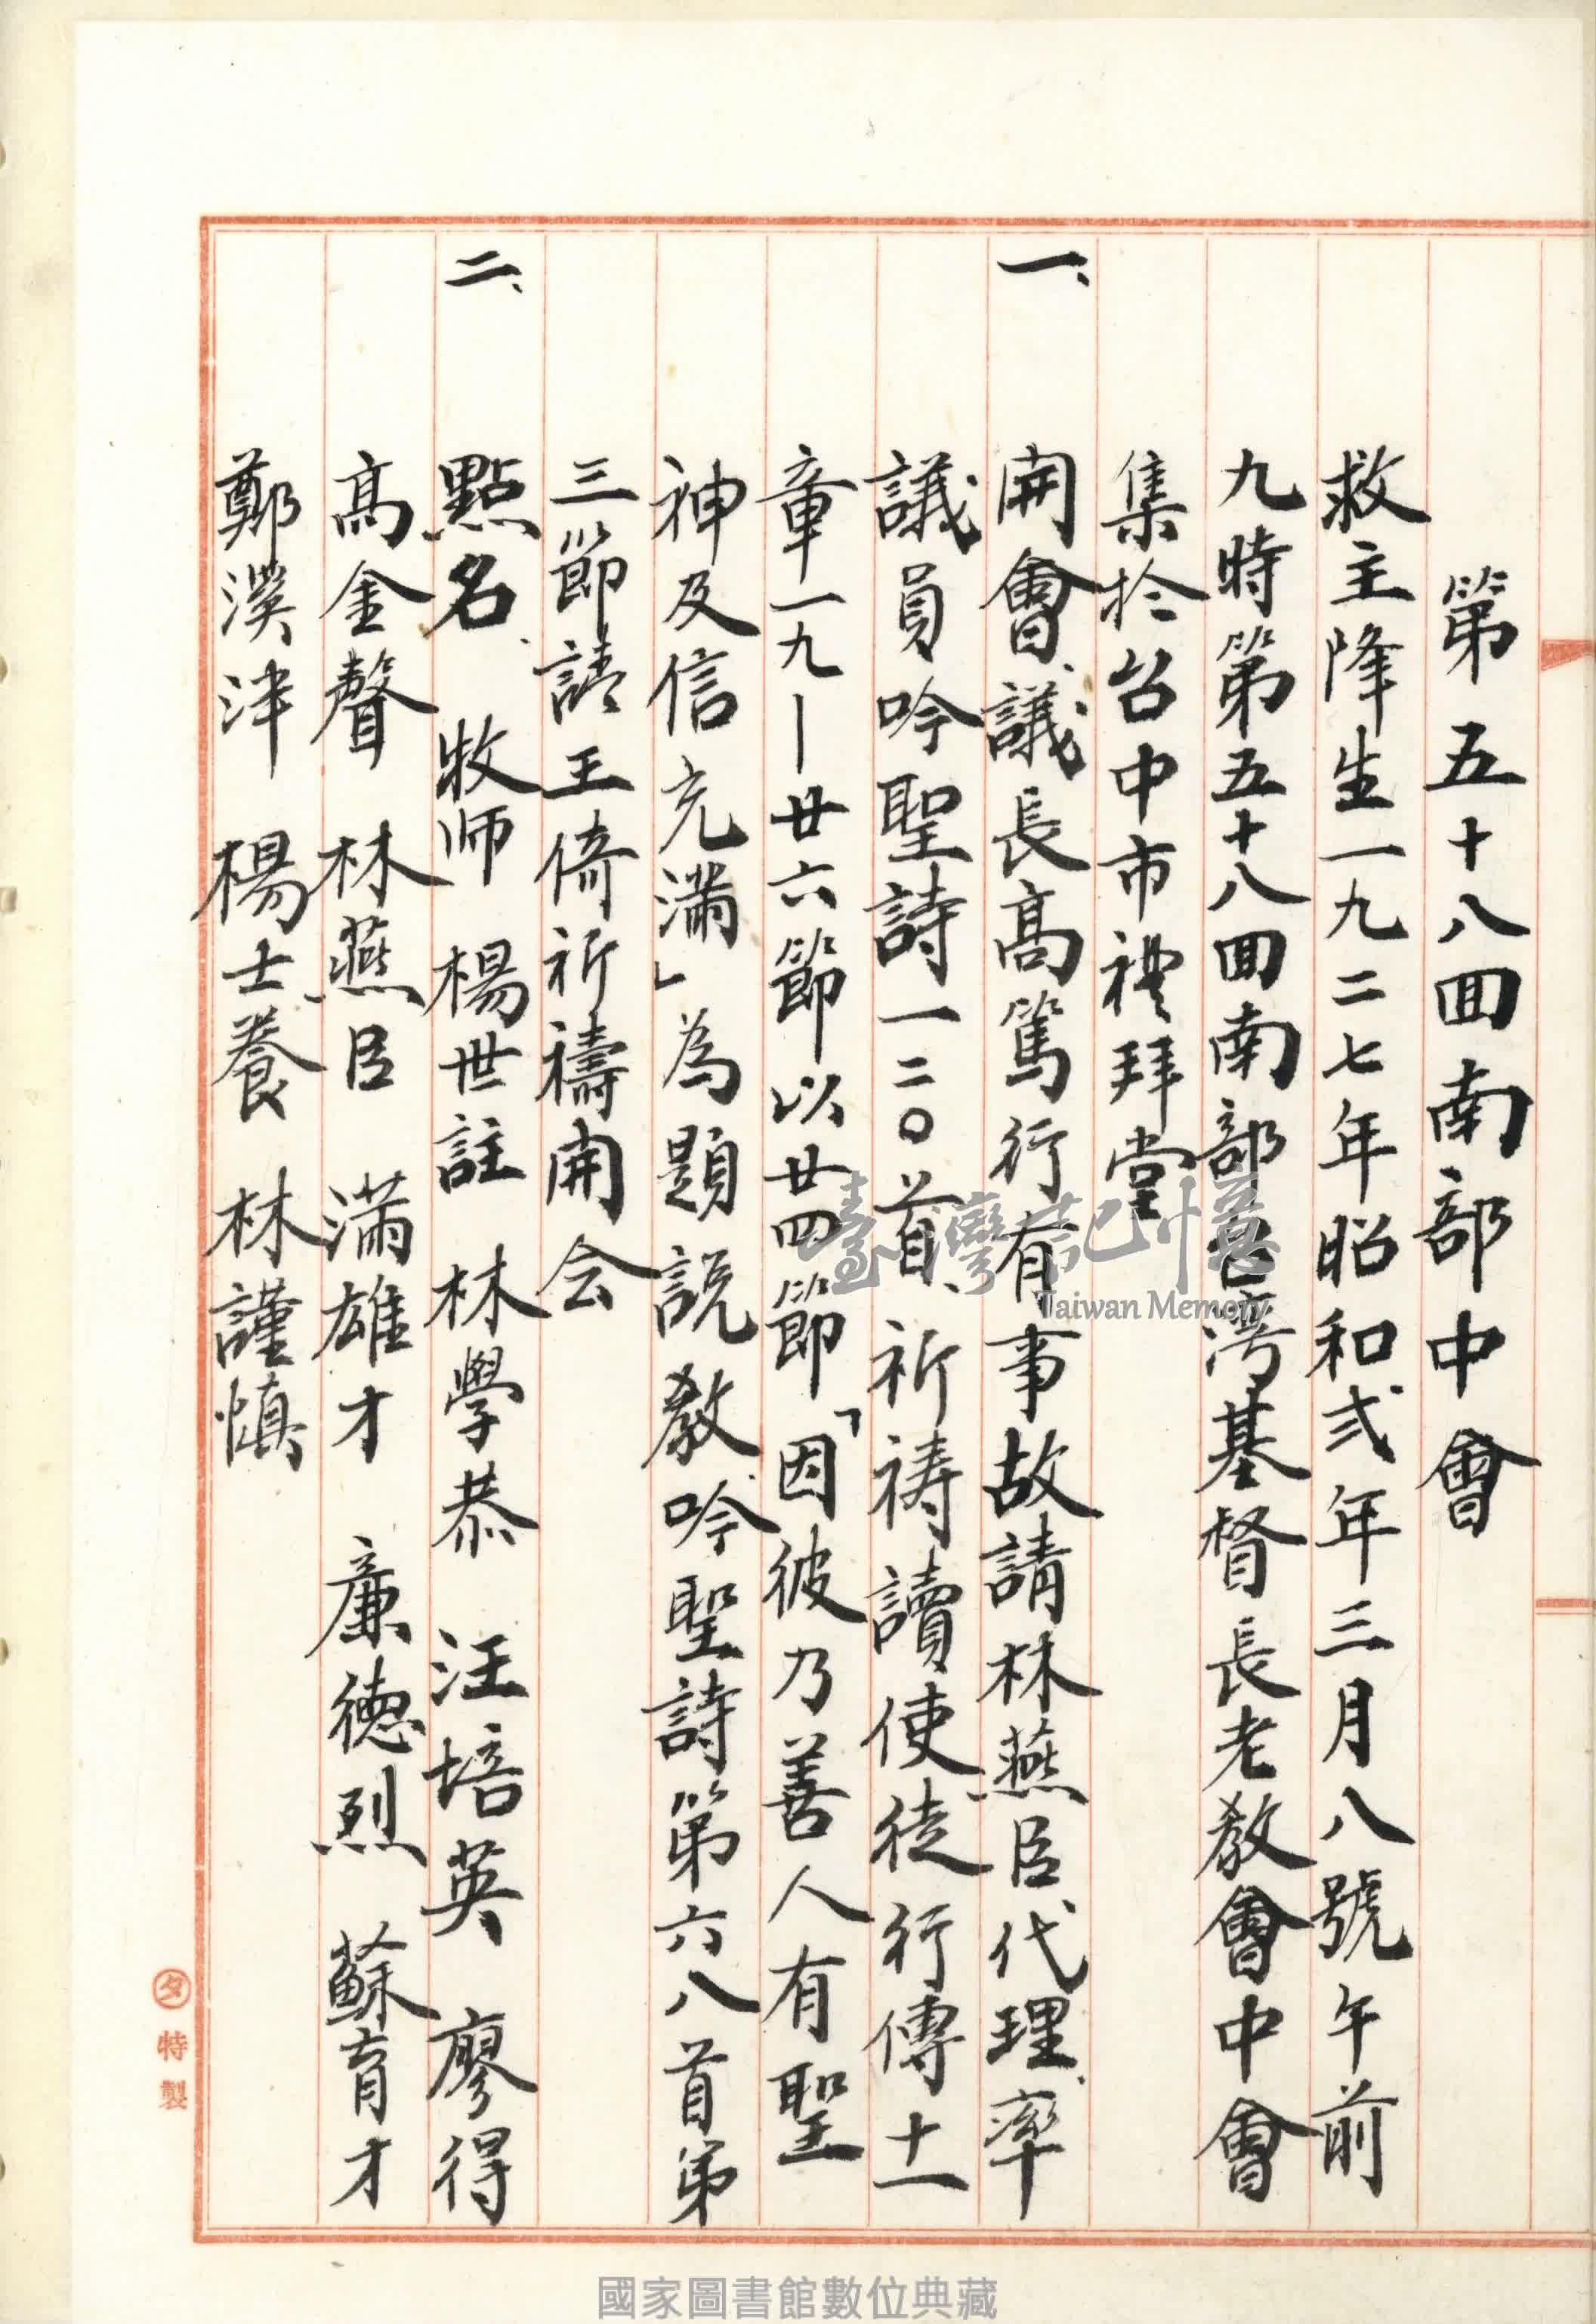 第五十八回南部中會
救主降生一九二七年昭和弍年三月八號午前
九時第五十八回南部台湾基督長老教會中會
集於台中市禮拜堂
一、開會、議長高篤行有事故請林燕臣代理、率
議員吟聖詩一二〇首、祈祷讀使徒行傳十一
章一九—廿六節以廿四節「因彼乃善人有聖
神及信充滿」為題説教、吟聖詩第六八首第
三節請王倚祈禱開会
二、點名、牧师 楊世註 林學恭 汪培英 廖得
高金聲 林燕臣 滿雄才 廉德烈 蘇育才
鄭溪泮 楊士養 林謹慎
タ特製
臺灣記憶
Taiwan Memory
國家圖書館數位典藏